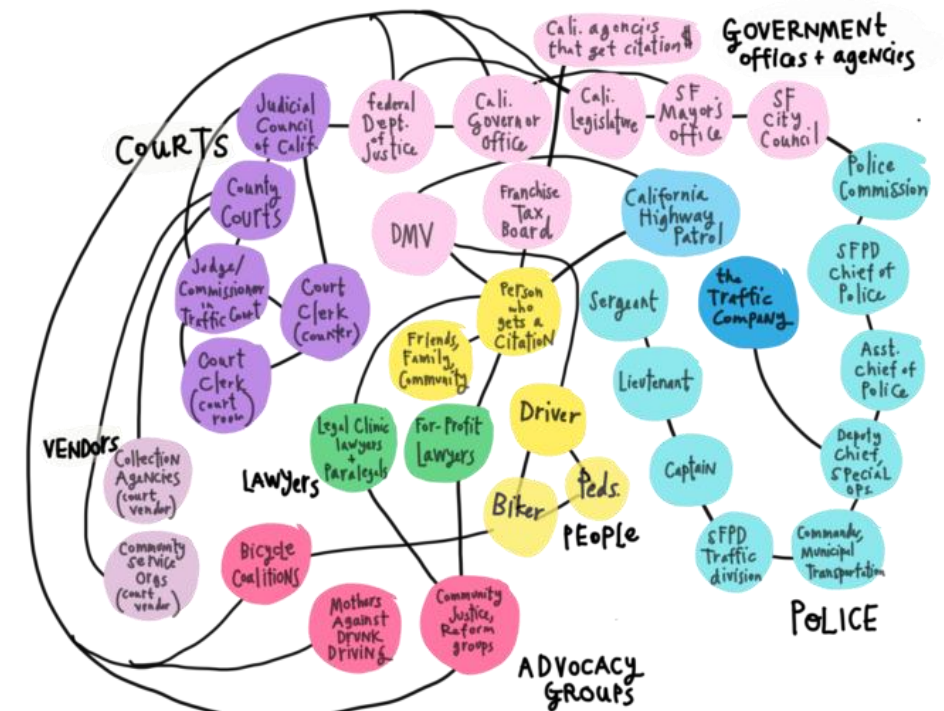 GOVERNMENT
offices + agencies
Cali. agencies
that get citation $
COURTS
Judicial
Council
of Calif.
federal
Dept.
of
Justice
Cali.
Governor
Office
Cali.
Legislature
SF
Mayor's
office
SF
City
Council
Police
Commission
County
Courts
DMV
Franchise
Tax
Board
California
Highway
Patrol
SFPD
Chief of
Police
Judge/
Commissioner
in
Traffic Court
Court
Clerk
(counter)
Person
who
gets a
Citation
Sergeant
the
Traffic
Company
Friends,
Family,
Community
Court
Clerk
(court
room)
Lieutenant
Asst.
chief of
Police
VENDORS
Collection
Agencies
(court
vendor)
LAWYERS
Legal Clinic
lawyers
+
Paralegals
For-Profit
Lawyers
Driver
Captain
Deputy
Chief,
Special
ops.
Biker
Peds.
PEOPLE
Community
Service
Orgs
(court
vendor)
Bicycle
Coalitions
SFPD
Traffic
division
Commander,
Municipal
Transportation
POLICE
Mothers
Against
Drunk
Driving
Community
Justice,
Reform
groups
ADVOCACY
GROUPS